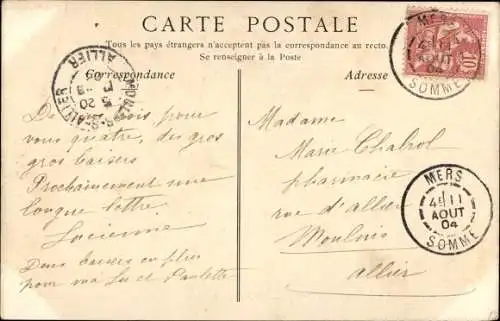 CARTE POSTALE
Tous les pays étrangers n'acceptent pas la correspondance au recto.
Se renseigner à la Poste
Correspondance
Adresse
De nous pour
vous quatre, des gros
gros baisers
Prochainement une
longue lettre
Lucienne
Deux baisers en plus
pour ma Lu et Paulette
Madame
Marie Chabrol
pharmacie
rue d'allier
Moulins
allier
MERS
4E 11
AOUT
04
SOMME
MERS
4E 11
AOUT
04
SOMME
ALLIER
10